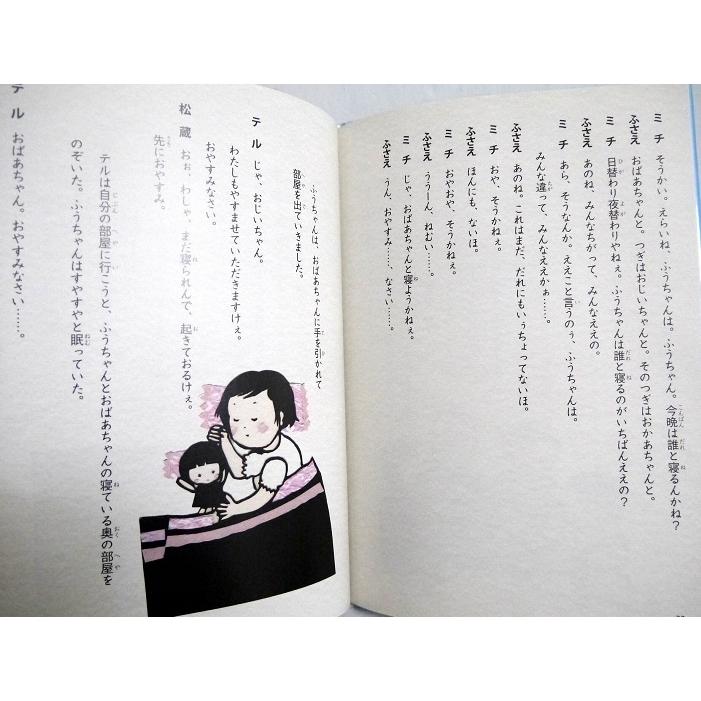 ミチ　そうかい。えらいね、ふうちゃんは。ふうちゃん。今晩は誰と寝るんかね？
ふさえ　おばあちゃんと。つぎはおじいちゃんと。そのつぎはおかあちゃんと。
ミチ　日替わり夜替わりやねぇ。ふうちゃんは誰と寝るのがいちばんええの？
ふさえ　あのね、みんなちがって、みんなええの。
ミチ　あら、そうなんか。ええこと言うのぅ、ふうちゃんは。
みんな違って、みんなええかぁ……。
ふさえ　あのね。これはまだ、だれにもいぅちょってないほ。
ミチ　おや、そうかねぇ。
ふさえ　ほんにも、ないほ。
ミチ　おやおや、そうかねぇ。
ふさえ　ううーん、ねむい……。
ミチ　じゃ、おばあちゃんと寝ようかねぇ。
ふさえ　うん、おやすみ……、なさい……。
ふうちゃんは、おばあちゃんに手を引かれて
部屋を出ていきました。
テル　じゃ、おじいちゃん。
わたしもやすませていただきますけぇ。
おやすみなさい。
松蔵　おぉ、わしゃ、まだ寝られんで、起きておるけぇ。
先におやすみ。
テルは自分の部屋に行こうと、ふうちゃんとおばあちゃんの寝ている奥の部屋を
のぞいた。ふうちゃんはすやすやと眠っていた。
テル　おばあちゃん。おやすみなさい……。